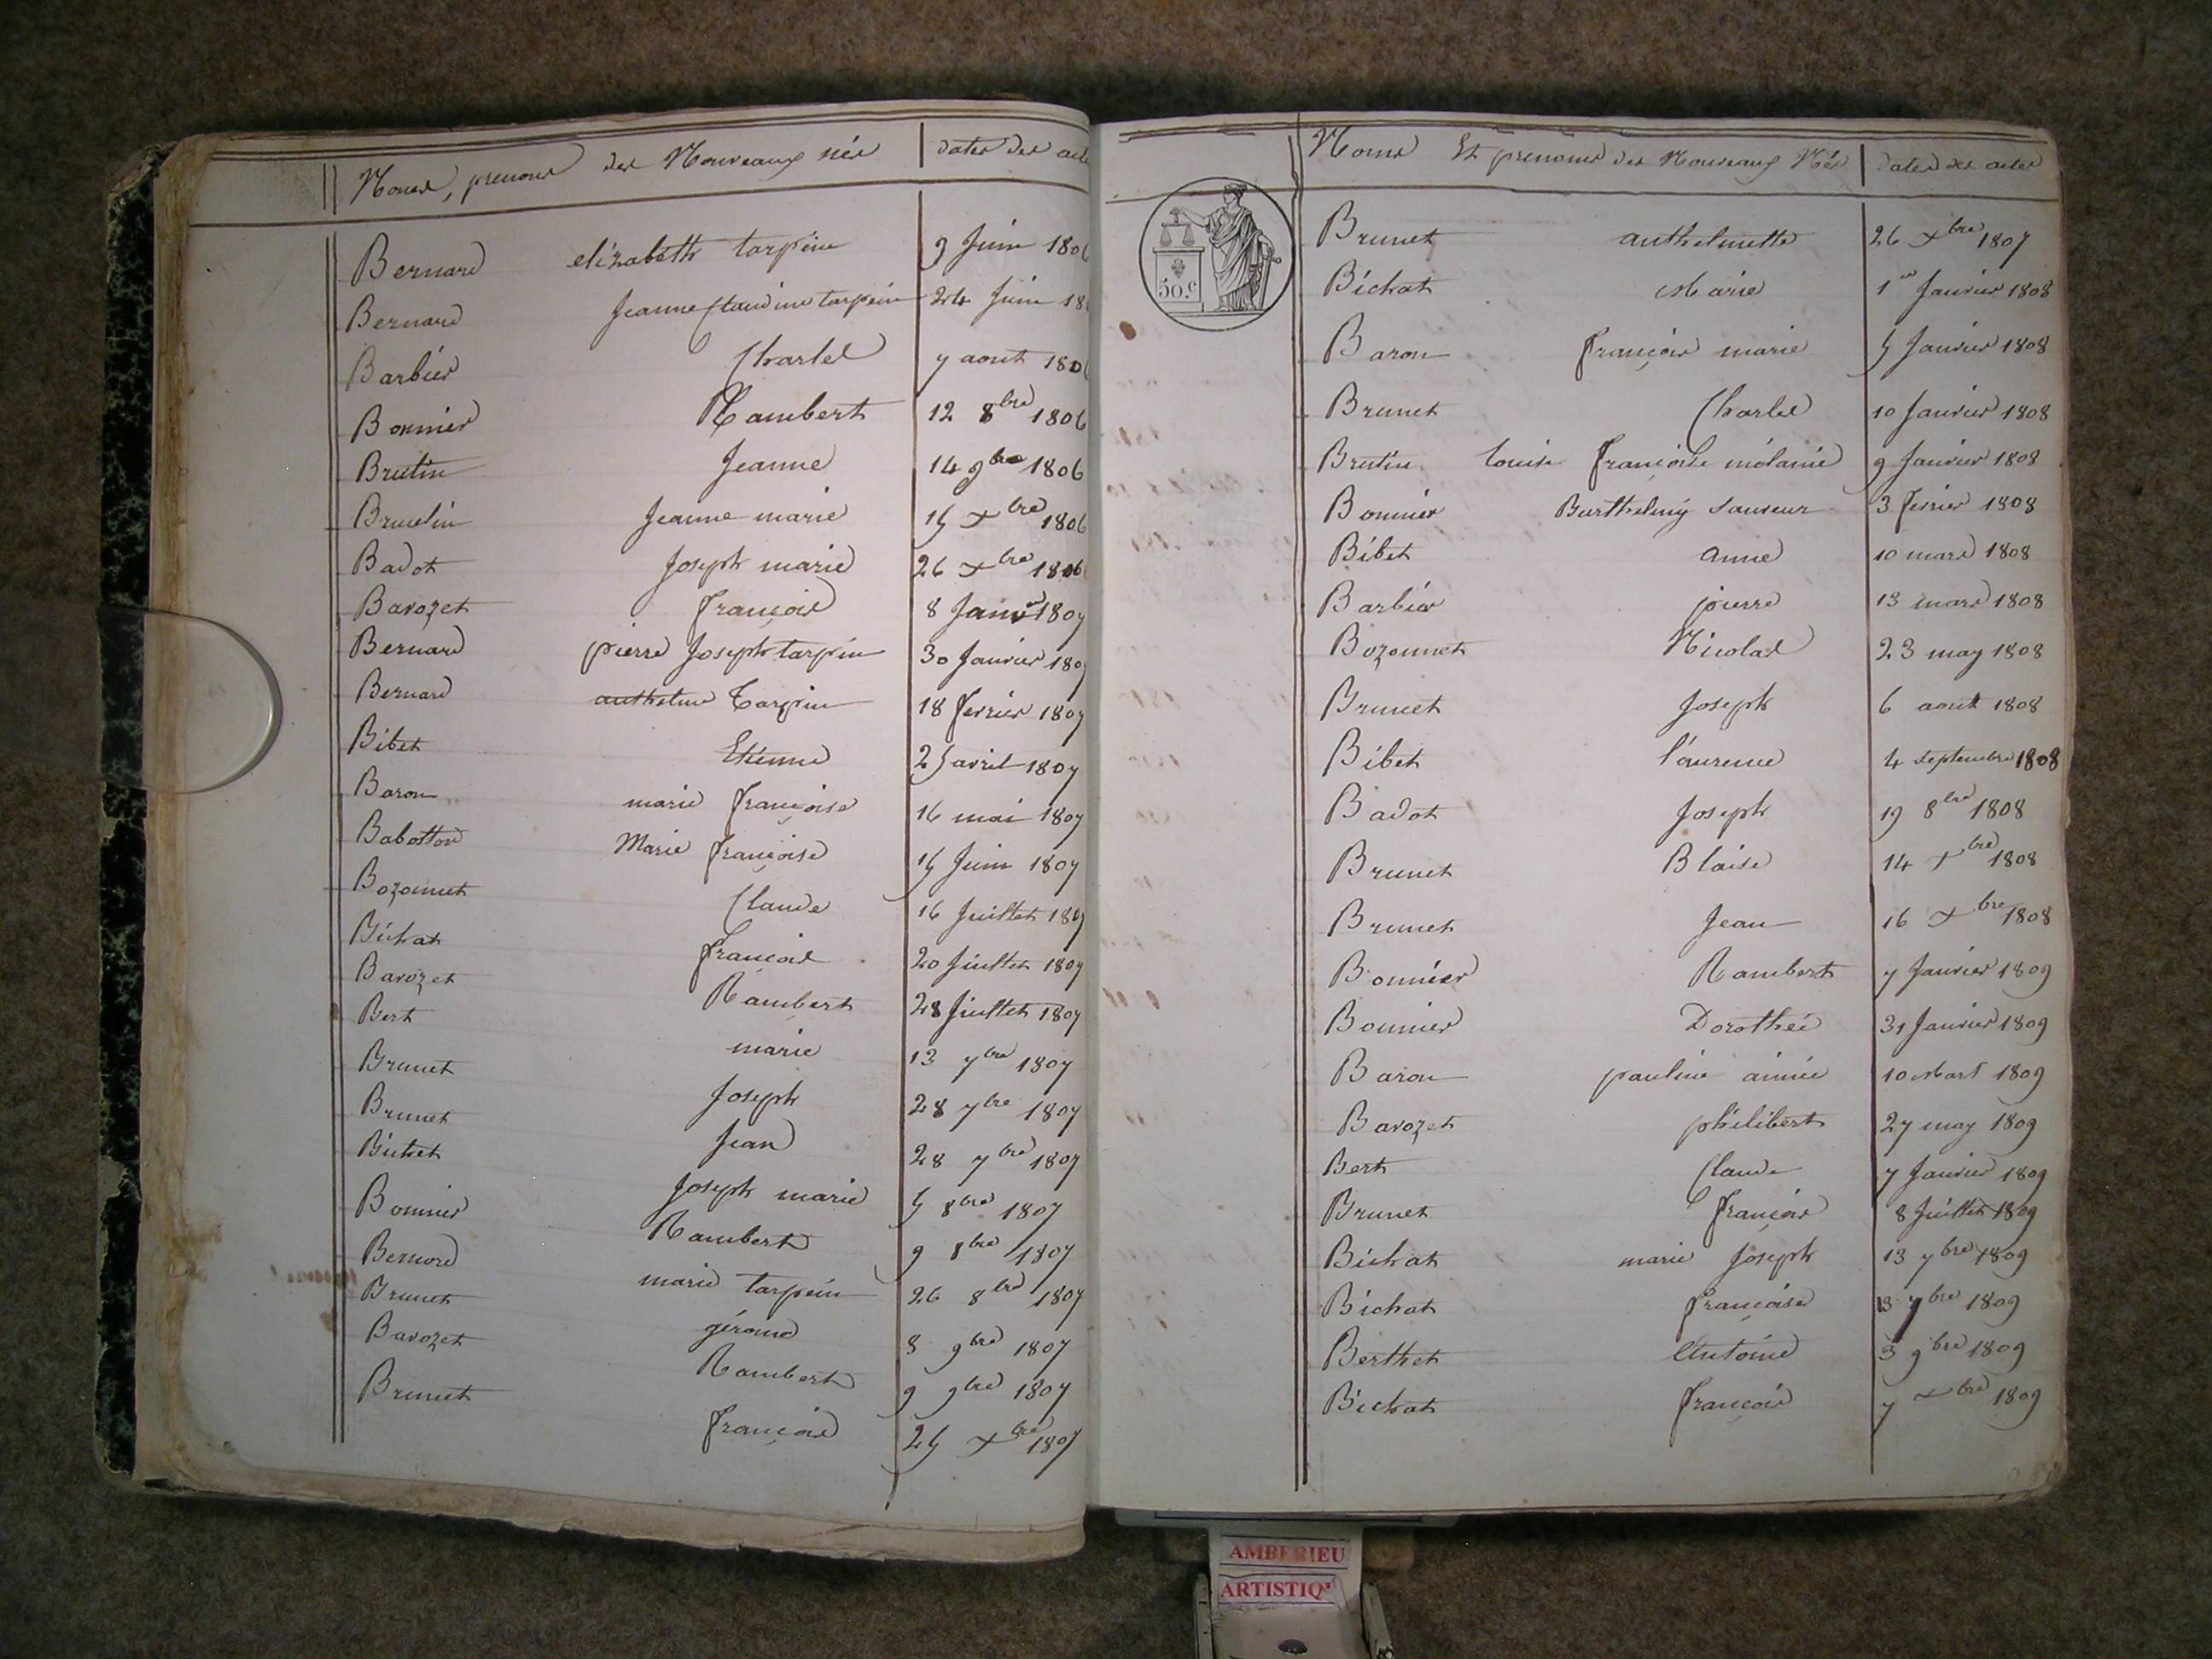 Noms, prenoms des Nouveaux nés dates des acte
Bernard elizabeth tarpin 9 Juin 1806
Bernard Jeanne Claudine tarpin 24 Juin 18
Barbier Charles 7 aout 1806
Bonnier Rambert 12 8bre 1806
Brutin Jeanne 14 9bre 1806
Brucelin Jeanne marie 15 Xbre 1806
Badot Joseph marie 26 Xbre 1806
Bavozet françois 8 Janvr 1807
Bernard pierre Joseph tarpin 30 Janvier 1807
Bernard anthelme Tarpin 18 fevrier 1807
Bibet Etienne 25 avril 1807
Baron marie françoise 16 mai 1807
Marie françoise 15 Juin 1807
Bozonnet Claude 16 Juillet 1807
Bichat françois 20 Juillet 1807
Bavozet Rambert 28 Juillet 1807
Bert marie 13 7bre 1807
Brunet Joseph 28 7bre 1807
Brunet Jean 28 7bre 1807
Bichet Joseph marie 5 8bre 1807
Bonnier Rambert 9 8bre 1807
Bernard marie tarpin 26 8bre 1807
Brunet gérome 8 9bre 1807
Bavozet Rambert 9 9bre 1807
Brunet françois 25 Xbre 1807
Noms Et prenoms des Nouveaux Nés dates des actes
50.c
Brunet anthelmette 26 Xbre 1807
Bichat Marie 1er Janvier 1808
Baron françois marie 5 Janvier 1808
Brunet Charles 10 Janvier 1808
Brutin Louise françoise mélanie 9 Janvier 1808
Bonnier Barthelmy Sauveur 3 fevrier 1808
Bibet anne 10 mars 1808
Barbier pierre 13 mars 1808
Bozonnet Nicolas 23 may 1808
Brunet Joseph 6 aout 1808
Bibet laurence 4 septembre 1808
Badot Joseph 19 8bre 1808
Brunet Blaise 14 Xbre 1808
Brunet Jean 16 Xbre 1808
Bonnier Rambert 7 Janvier 1809
Bonnier Dorothée 31 Janvier 1809
Baron pauline aimée 10 Mars 1809
Bavozet philibert 27 may 1809
Bert Claude 7 Janvier 1809
Brunet François 8 Juillet 1809
Bichat marie Joseph 13 7bre 1809
Bichat françoise 13 7bre 1809
Berthet Antoine 3 9bre 1809
Bichat françois 7 Xbre 1809
AMBERIEU
ARTISTIQ